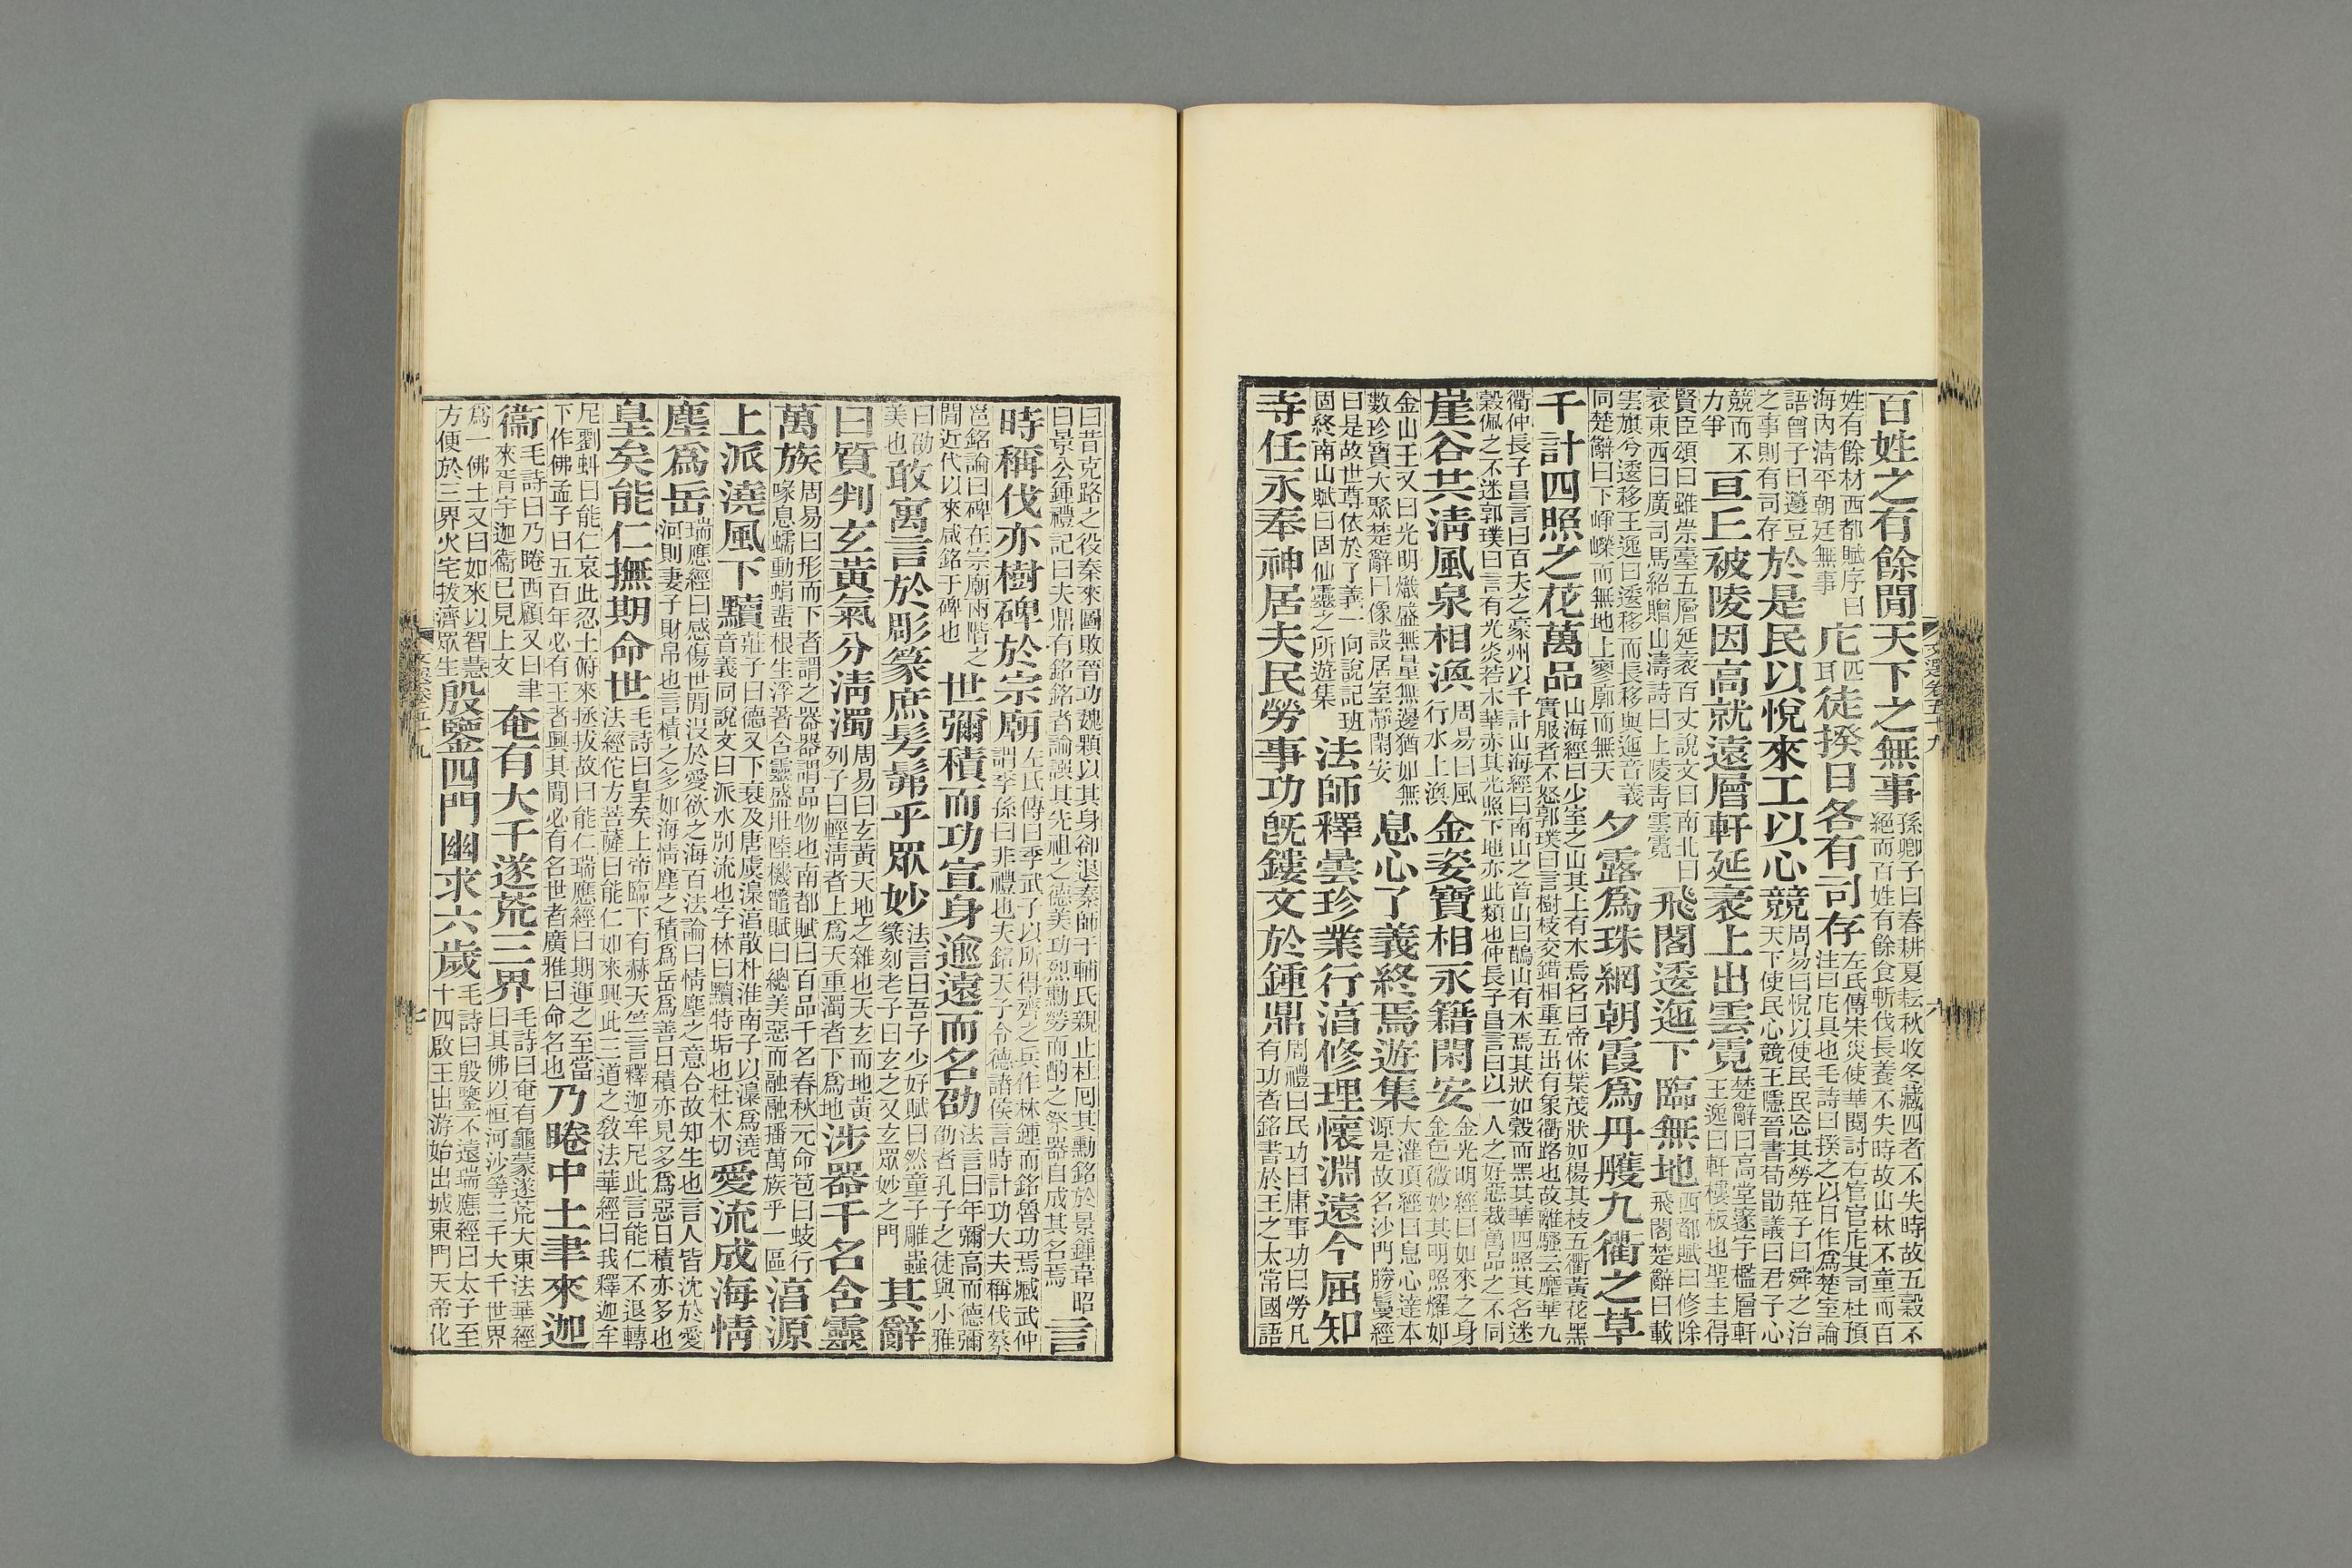 百姓之有餘閒天下之無事孫卿子曰春耕夏耘秋收冬藏四者不失時故五穀不絕而百姓有餘食斬伐長養不失時故山林不童而百
姓有餘材西都賦序曰海內淸平朝廷無事庀匹耳徒揆日各有司存左氏傳朱災使華閱討右官官庀其司杜預注曰庀具也毛詩曰揆之以日作爲楚室論
語曾子曰籩豆之事則有司存於是民以悅來工以心競周易曰悅以使民民忘其勞莊子曰舜之治天下使民心競王隱晉書荀勖議曰君子心
競而不力爭亘丘被陵因高就遠層軒延袤上出雲霓楚辭曰高堂邃宇檻層軒王逸曰軒樓板也聖主得
賢臣頌曰雖崇臺五層延袤百丈說文曰南北曰袤東西曰廣司馬紹贈山濤詩曰上陵靑雲霓飛閣逶迤下臨無地西都賦曰修除飛閣楚辭曰載
雲旗兮逶移王逸曰逶移而長移與迤音義同楚辭曰下崢嶸而無地上寥廓而無天夕露爲珠網朝霞爲丹雘九衢之草
千計四照之花萬品山海經曰少室之山其上有木焉名曰帝休葉茂狀如楊其枝五衢黃花黑實服者不怒郭璞曰言樹枝交錯相重五出有象衢路也故離騷云靡華九
衢仲長子昌言曰百夫之豪州以千計山海經曰南山之首山曰鵲山有木焉其狀如穀而黑其華四照其名迷穀佩之不迷郭璞曰言有光炎若木華赤其光照下地亦此類也仲長子昌言曰以一人之好惡裁萬品之不同
崖谷共淸風泉相渙周易曰風行水上渙金姿寶相永籍閑安金光明經曰如來之身金色微妙其明照耀如
金山王又曰光明熾盛無量無邊猶如無數珍寶大聚楚辭曰像設居室靜閑安息心了義終焉遊集大灌頂經曰息心達本源是故名沙門勝鬘經
曰是故世尊依於了義一向說記班固終南山賦曰固仙靈之所遊集法師釋曇珍業行湻修理懷淵遠今屈知
寺任永奉神居夫民勞事功旣鏤文於鍾鼎周禮曰民功曰庸事功曰勞凡有功者銘書於王之太常國語
文選卷五十九 六
曰昔克路之役秦來圖敗晉功魏顆以其身卻退秦師于輔氏親止杜回其勳銘於景鍾韋昭曰景公鍾禮記曰夫鼎有銘銘者論譔其先祖之德美功烈勳勞而酌之祭器自成其名焉言
時稱伐亦樹碑於宗廟左氏傳曰季武子以所得齊之兵作林鍾而銘魯功焉臧武仲謂季孫曰非禮也夫銘天子令德諸侯言時計功大夫稱伐蔡
邕銘論曰碑在宗廟兩階之閒近代以來咸銘于碑也世彌積而功宣身逾遠而名劭法言曰年彌高而德彌劭者孔子之徒與小雅
曰劭美也敢寓言於彫篆庶髣髴乎眾妙法言曰吾子少好賦曰然童子雕蟲篆刻老子曰玄之又玄眾妙之門其辭
曰質判玄黃氣分淸濁周易曰玄黃天地之雜也天玄而地黃列子曰輕淸者上爲天重濁者下爲地涉器千名含靈
萬族周易曰形而下者謂之器器謂品物也南都賦曰百品千名春秋元命苞曰蚑行喙息蠕動蜎蜚根生浮著含靈盛壯陸機鼈賦曰總美惡而融融播萬族乎一區湻源
上派澆風下黷莊子曰德又下衰及唐虞澆湻散朴淮南子以澡爲澆音義同說文曰派水別流也字林曰黷特垢也杜木切愛流成海情
塵爲岳瑞應經曰感傷世閒沒於愛欲之海百法論曰情塵之意合故知生也言人皆沈於愛河則妻子財帛也言積之多如海情塵之積爲岳爲善日積亦見多爲惡日積亦多也
皇矣能仁撫期命世毛詩曰皇矣上帝臨下有赫天竺言釋迦牟尼此言能仁不退轉法經佗方菩薩曰能仁如來興此三道之敎法華經曰我釋迦牟
尼劉虯曰能仁哀此忍土俯來拯拔故曰能仁瑞應經曰期運之至當下作佛孟子曰五百年必有王者興其閒必有名世者廣雅曰命名也乃睠中土聿來迦
衞毛詩曰乃睠西顧又曰聿來胥宇迦衞已見上文奄有大千遂荒三界毛詩曰奄有龜蒙遂荒大東法華經曰其佛以恒河沙等三千大千世界
爲一佛土又曰如來以智慧方便於三界火宅拔濟眾生殷鑒四門幽求六歲毛詩曰殷鑒不遠瑞應經曰太子至十四啟王出游始出城東門天帝化
七